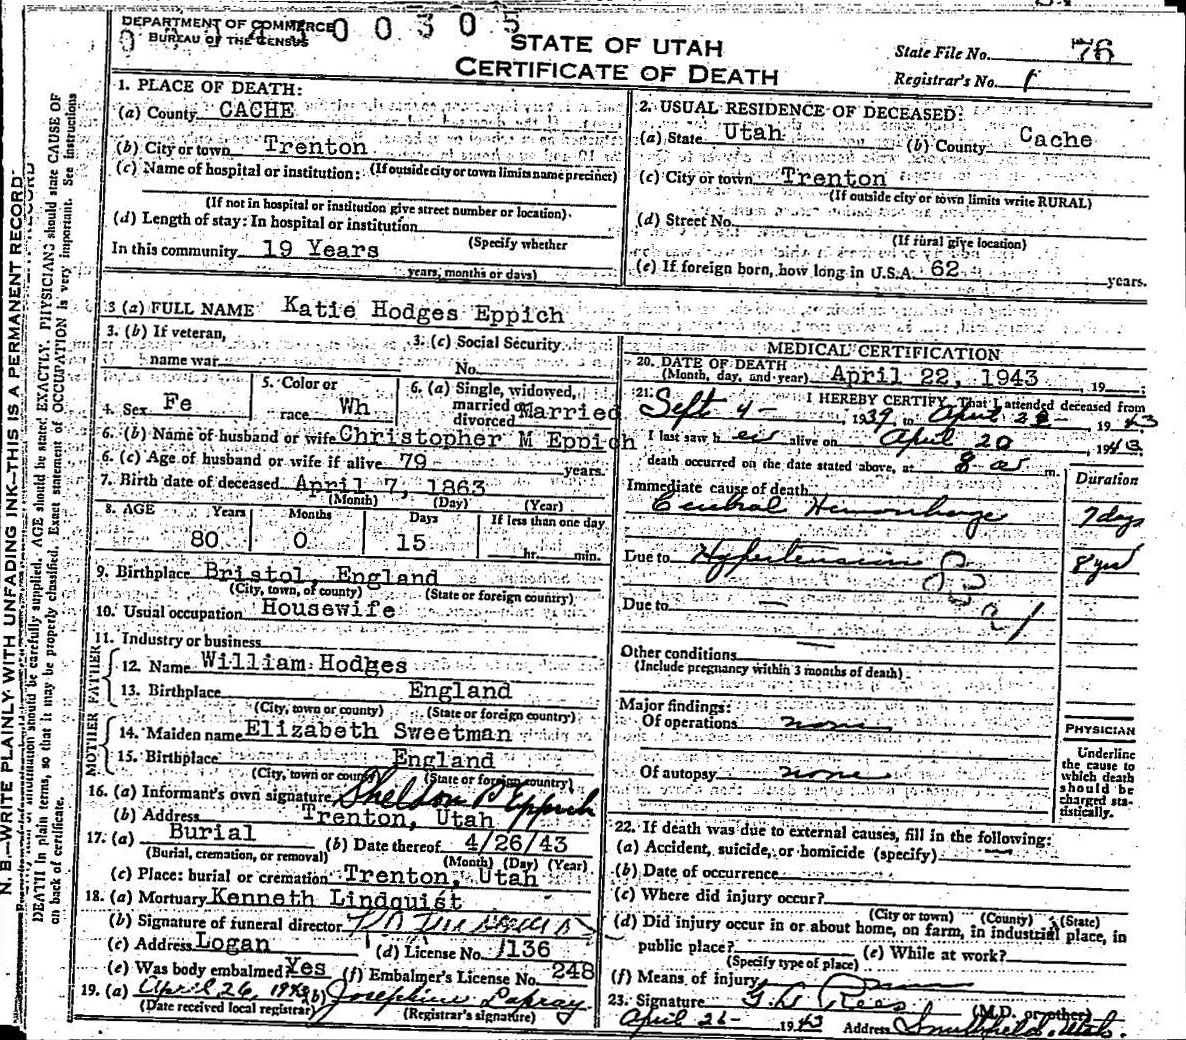 DEPARTMENT OF COMMERCE
BUREAU OF THE CENSUS
0 0 3 0 5
STATE OF UTAH
CERTIFICATE OF DEATH
State File No. 76
Registrar's No. 1
1. PLACE OF DEATH:
(a) County CACHE
(b) City or town Trenton
(If outside city or town limits name precinct)
(c) Name of hospital or institution:
(If not in hospital or institution give street number or location)
(d) Length of stay: In hospital or institution
(Specify whether
In this community 19 Years
years, months or days)
2. USUAL RESIDENCE OF DECEASED:
(a) State Utah (b) County Cache
(c) City or town Trenton
(If outside city or town limits write RURAL)
(d) Street No.
(If rural give location)
(e) If foreign born, how long in U.S.A. 62 years.
3 (a) FULL NAME Katie Hodges Eppich
3. (b) If veteran,
name war
3. (c) Social Security
No.
4. Sex Fe
5. Color or
race Wh
6. (a) Single, widowed,
married or
divorced Married
6. (b) Name of husband or wife Christopher M Eppich
6. (c) Age of husband or wife if alive 79 years.
7. Birth date of deceased April 7, 1863
(Month) (Day) (Year)
8. AGE Years Months Days If less than one day
80 0 15 hr. min.
9. Birthplace Bristol, England
(City, town, or county) (State or foreign country)
10. Usual occupation Housewife
11. Industry or business
FATHER
12. Name William Hodges
13. Birthplace England
(City, town or county) (State or foreign country)
MOTHER
14. Maiden name Elizabeth Sweetman
15. Birthplace England
(City, town or county) (State or foreign country)
16. (a) Informant's own signature Sheldon B Eppich
(b) Address Trenton, Utah
17. (a) Burial (b) Date thereof 4/26/43
(Burial, cremation, or removal) (Month) (Day) (Year)
(c) Place: burial or cremation Trenton, Utah
18. (a) Mortuary Kenneth Lindquist
(b) Signature of funeral director
(c) Address Logan (d) License No. 136
(e) Was body embalmed Yes (f) Embalmer's License No. 248
19. (a) April 26, 1943 (b) Josephine
(Date received local registrar) (Registrar's signature)
MEDICAL CERTIFICATION
20. DATE OF DEATH
(Month, day, and year) April 22, 1943 19
21. I HEREBY CERTIFY, That I attended deceased from
Sept 4 - 1939 to April 1943
I last saw her alive on April 20 1943
death occurred on the date stated above, at 8 a m.
Immediate cause of death Duration
Cerebral Hemorrhage 7 days
Due to Hypertension 8 yrs
Due to —
Other conditions
(Include pregnancy within 3 months of death)
Major findings:
Of operations none
Of autopsy none
PHYSICIAN
Underline
the cause to
which death
should be
charged sta-
tistically.
22. If death was due to external causes, fill in the following:
(a) Accident, suicide, or homicide (specify) —
(b) Date of occurrence
(c) Where did injury occur?
(City or town) (County) (State)
(d) Did injury occur in or about home, on farm, in industrial place, in
public place? (e) While at work?
(Specify type of place)
(f) Means of injury
23. Signature Rees (M.D. or other)
April 26 - 1943 Address Smithfield, Utah.
N. B.—WRITE PLAINLY WITH UNFADING INK—THIS IS A PERMANENT RECORD
should be carefully supplied. AGE should be stated EXACTLY. PHYSICIANS should state CAUSE OF
DEATH in plain terms, so that it may be properly classified. Exact statement of OCCUPATION is very important. See Instructions
on back of certificate.